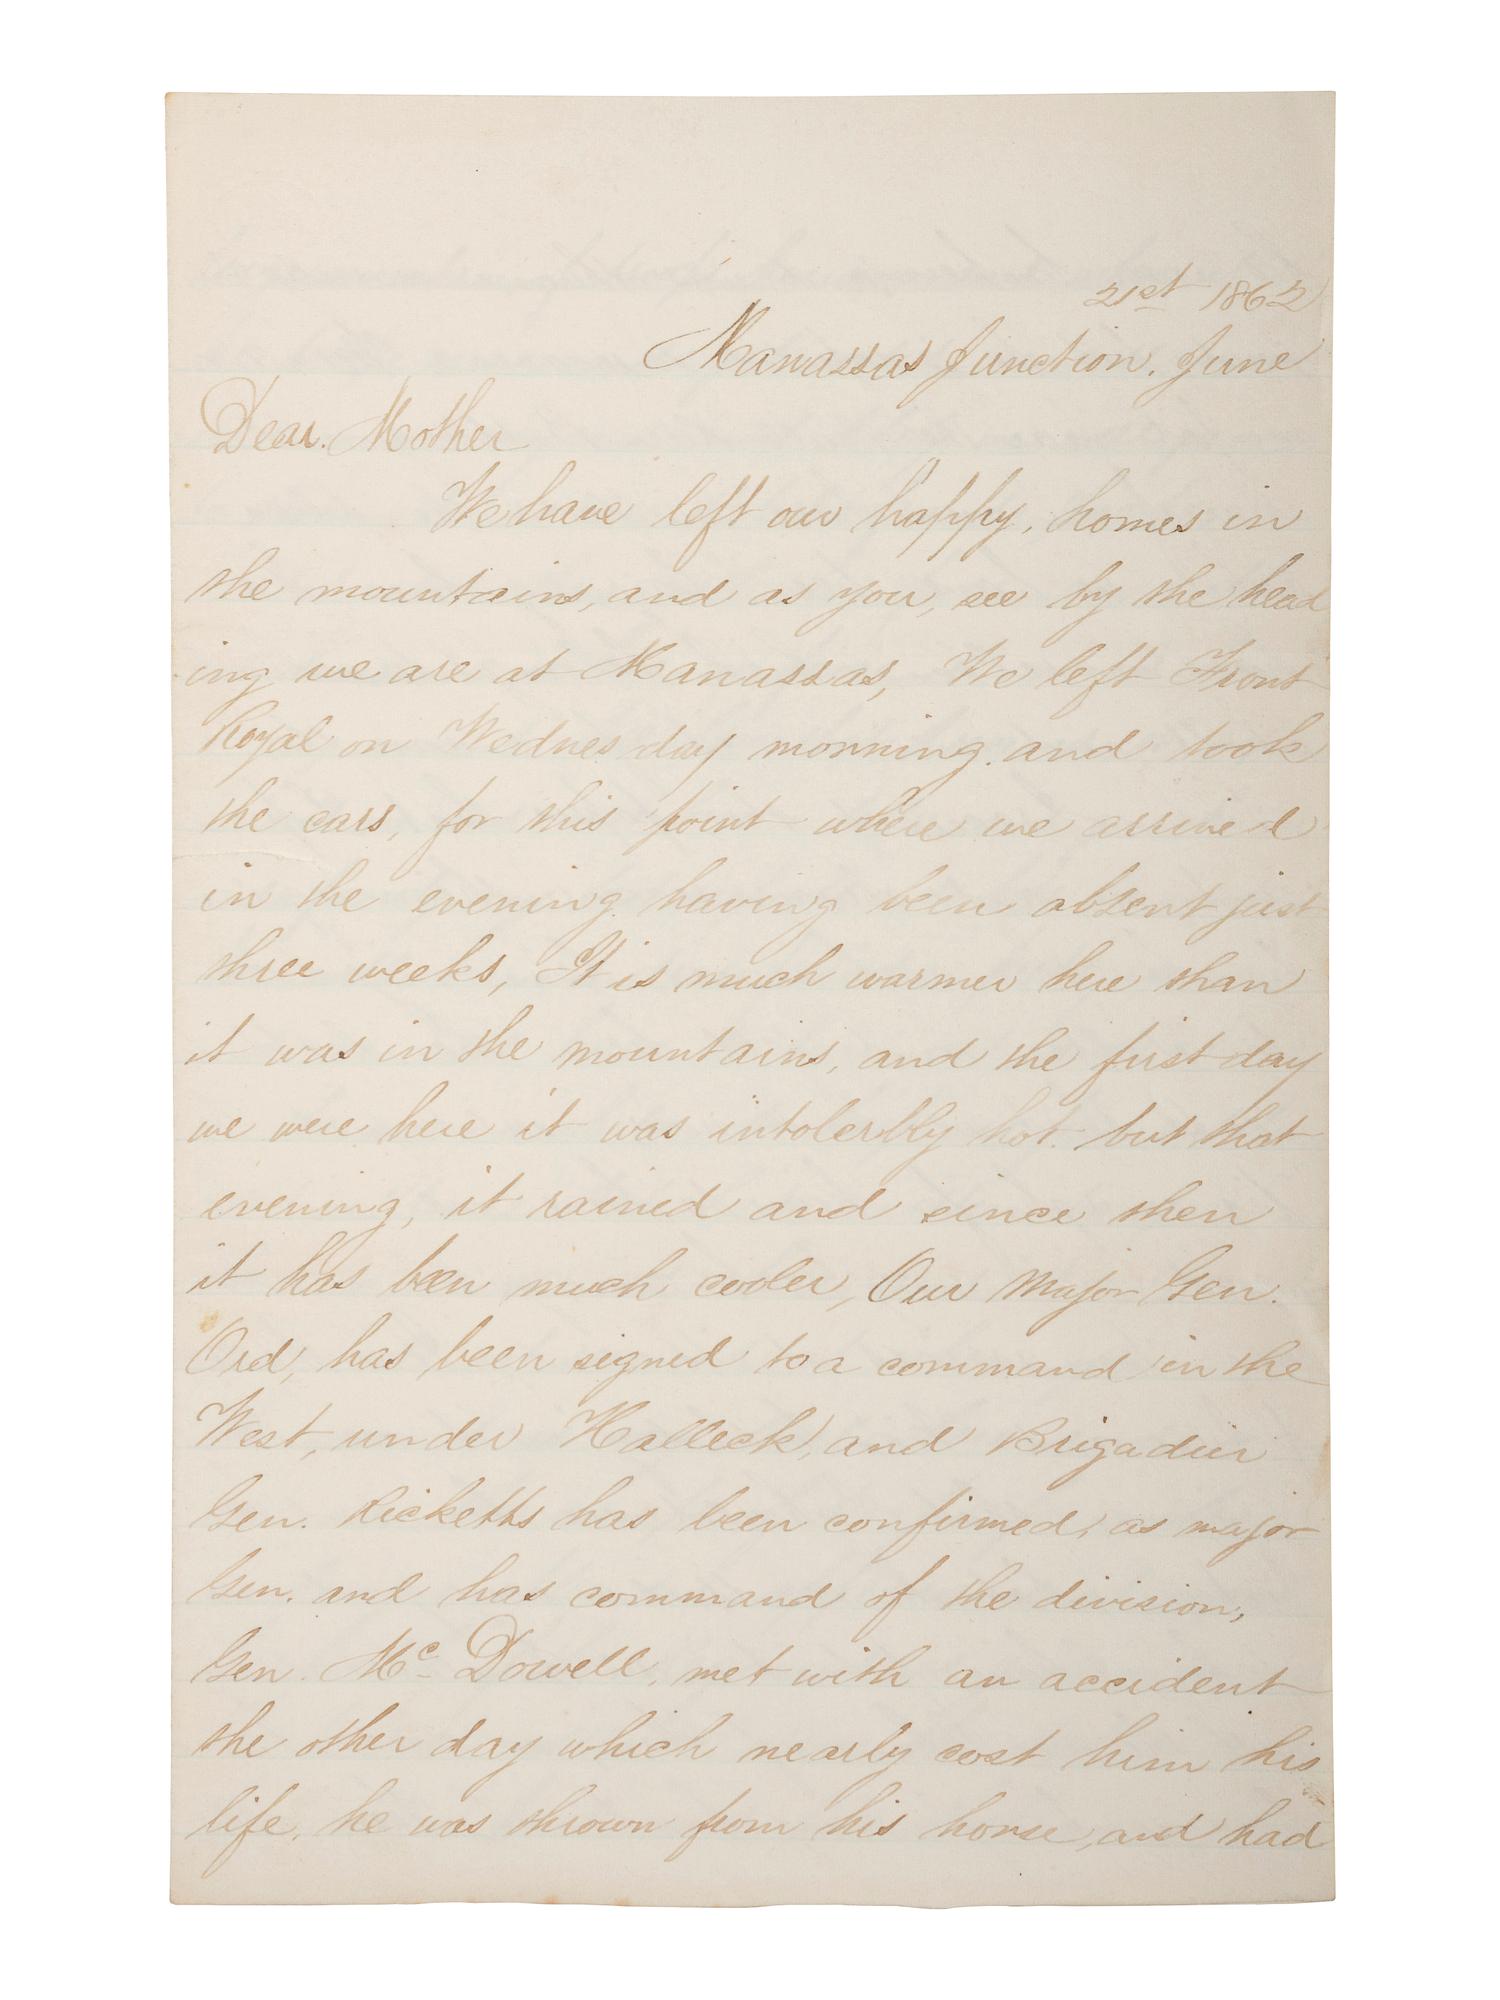 21st 1862
Manassas Junction. June
Dear. Mother
We have left our happy, homes in
the mountains, and as you, see by the head
ing we are at Manassas, We left Front
Royal on Wednesday morning. and took
the cars, for this point where we arrived
in the evening having been absent just
three weeks, It is much warmer here than
it was in the mountains, and the first day
we were here it was intolerbly hot. but that
evening, it rained and since then
it has been much cooler, Our Major Gen.
Ord, has been signed to a command in the
West, under Halleck, and Brigadier
Gen. Ricketts has been confirmed, as major
Gen. and has command of the division,
Gen. Mc Dowell, met with an accident
the other day which nearly cost him his
life, he was thrown from his horse, and had